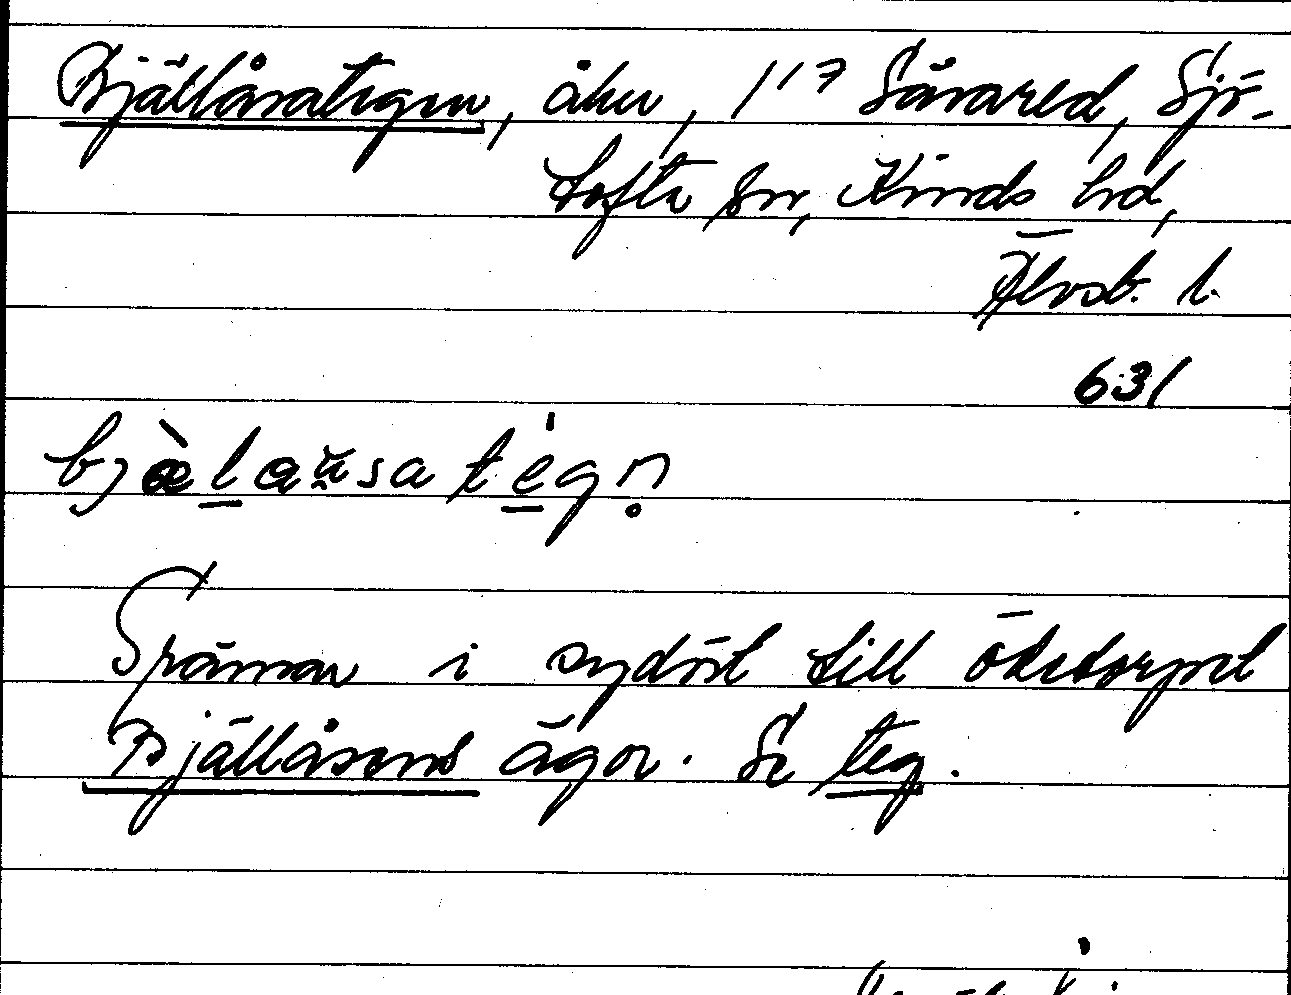 Bjällåsategen, åker, 1¹⁷ Såvared, Sjö-
tofta sn, Kinds hd,
Älvsb. l.
631
bjæ̀lau̯satégn̥
Gränsar i sydöst till ödetorpet
Bjällåsens ägor. Se teg.